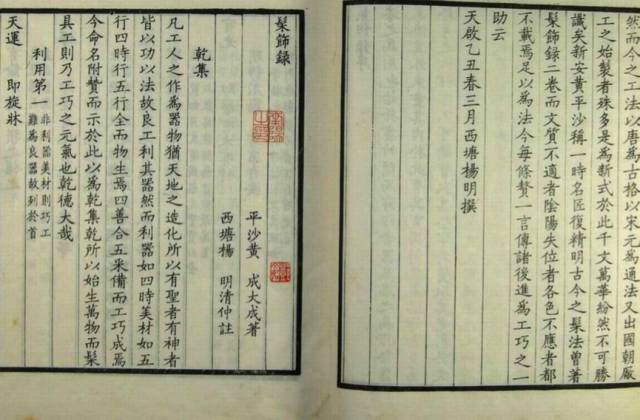 然而今之工法以唐為古格以宋元為通法又出國朝厰
工之始製者殊多是為新式於此千文萬華紛然不可勝
識矣新安黃平沙稱一時名匠復精明古今之髹法曾著
髹飾録二卷而文質不適者陰陽失位者各色不應者都
不載焉足以為法今每條贅一言傳諸後進為工巧之一
助云
天啟乙丑春三月西塘楊明撰
髹飾録
平沙黃 成大成著
西塘楊 明清仲註
乾集
凡工人之作為器物猶天地之造化所以有聖者有神者
皆以功以法故良工利其器然而利器如四時美材如五
行四時行五行全而物生焉四善合五采備而工巧成焉
今命名附贊而示於此以為乾集乾所以始生萬物而髹
具工則乃工巧之元氣也乾德大哉
利用第一 非利器美材則巧工
難為良器故列於首
天運 即旋牀